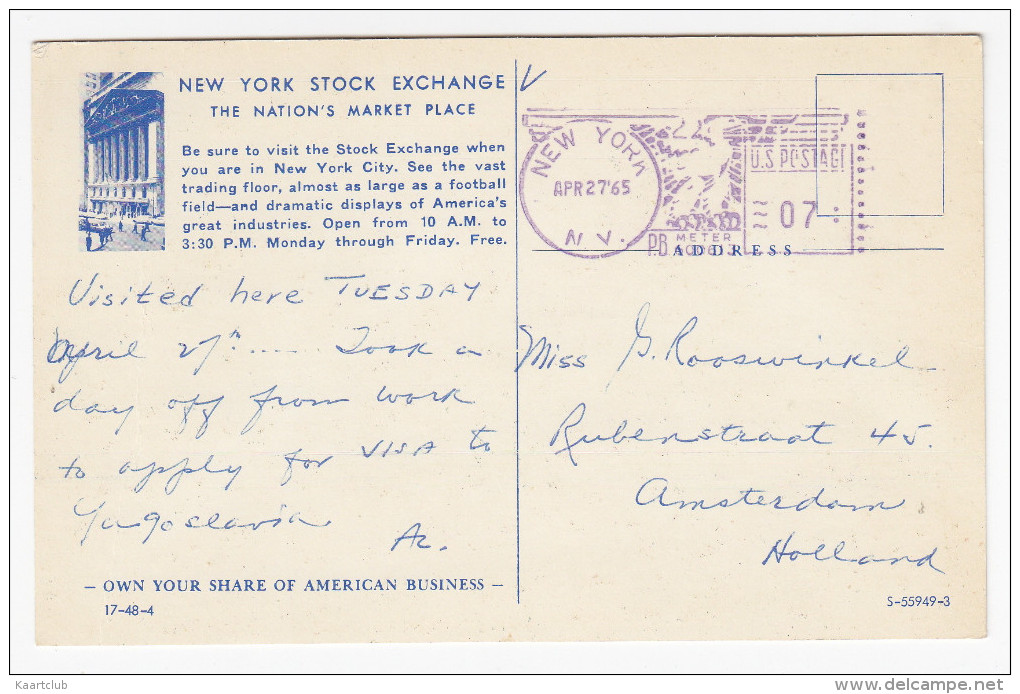 NEW YORK STOCK EXCHANGE
THE NATION'S MARKET PLACE
Be sure to visit the Stock Exchange when
you are in New York City. See the vast
trading floor, almost as large as a football
field—and dramatic displays of America's
great industries. Open from 10 A.M. to
3:30 P.M. Monday through Friday. Free.
Visited here TUESDAY
April 27th .... Took a
day off from work
to apply for VISA to
Yugoslavia
— OWN YOUR SHARE OF AMERICAN BUSINESS —
17-48-4
NEW YORK
APR 27'65
N.Y.
P.B. METER
U.S. POSTAGE
07
ADDRESS
Miss G. Rooswinkel
Rubenstraat 45.
Amsterdam
Holland
S-55949-3
Kaartclub
delcampe.net